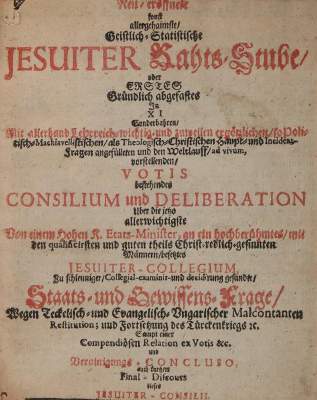 Neu-eröffnete
sonst
allergeheimste/
Geistlich-Statistische
JESUITER Rahts-Stube/
oder
ERSTES
Gründlich abgefastes
In
XI
Sonderbahren/
Mit allerhand Lehrreich-wichtig-und zuweilen ergötzlichen/so Poli-
tisch-Machiavellistischen/als Theologisch-Christlichen Haupt- und Incidenz-
Fragen angefülleten und den Weltlauff/ad vivum,
vorstellenden/
VOTIS
bestehendes
CONSILIUM und DELIBERATION
Über die jene
allerwichtigste
Von einem Hohen K. Etats-Minister, an ein hochberühmtes/mit
den qualificirsten und guten theils Christ-redlich-gesinnten
Männern/besetztes
JESUITER-COLLEGIUM,
Zu schleuniger/Collegial-examinir-und decidirung gesandte/
Staats-und Gewissens-Frage/
Wegen Teckelisch-und Evangelisch-Ungarischer Malcontanten
Restitution; und Fortsetzung des Türckenkriegs ꝛc.
Sampt einer
Compendiösen Relation ex Votis &c.
und
Vereinigungs-CONCLUSO,
auch kurtzen
Final-Discours
dieses
JESUITER-CONSILII.